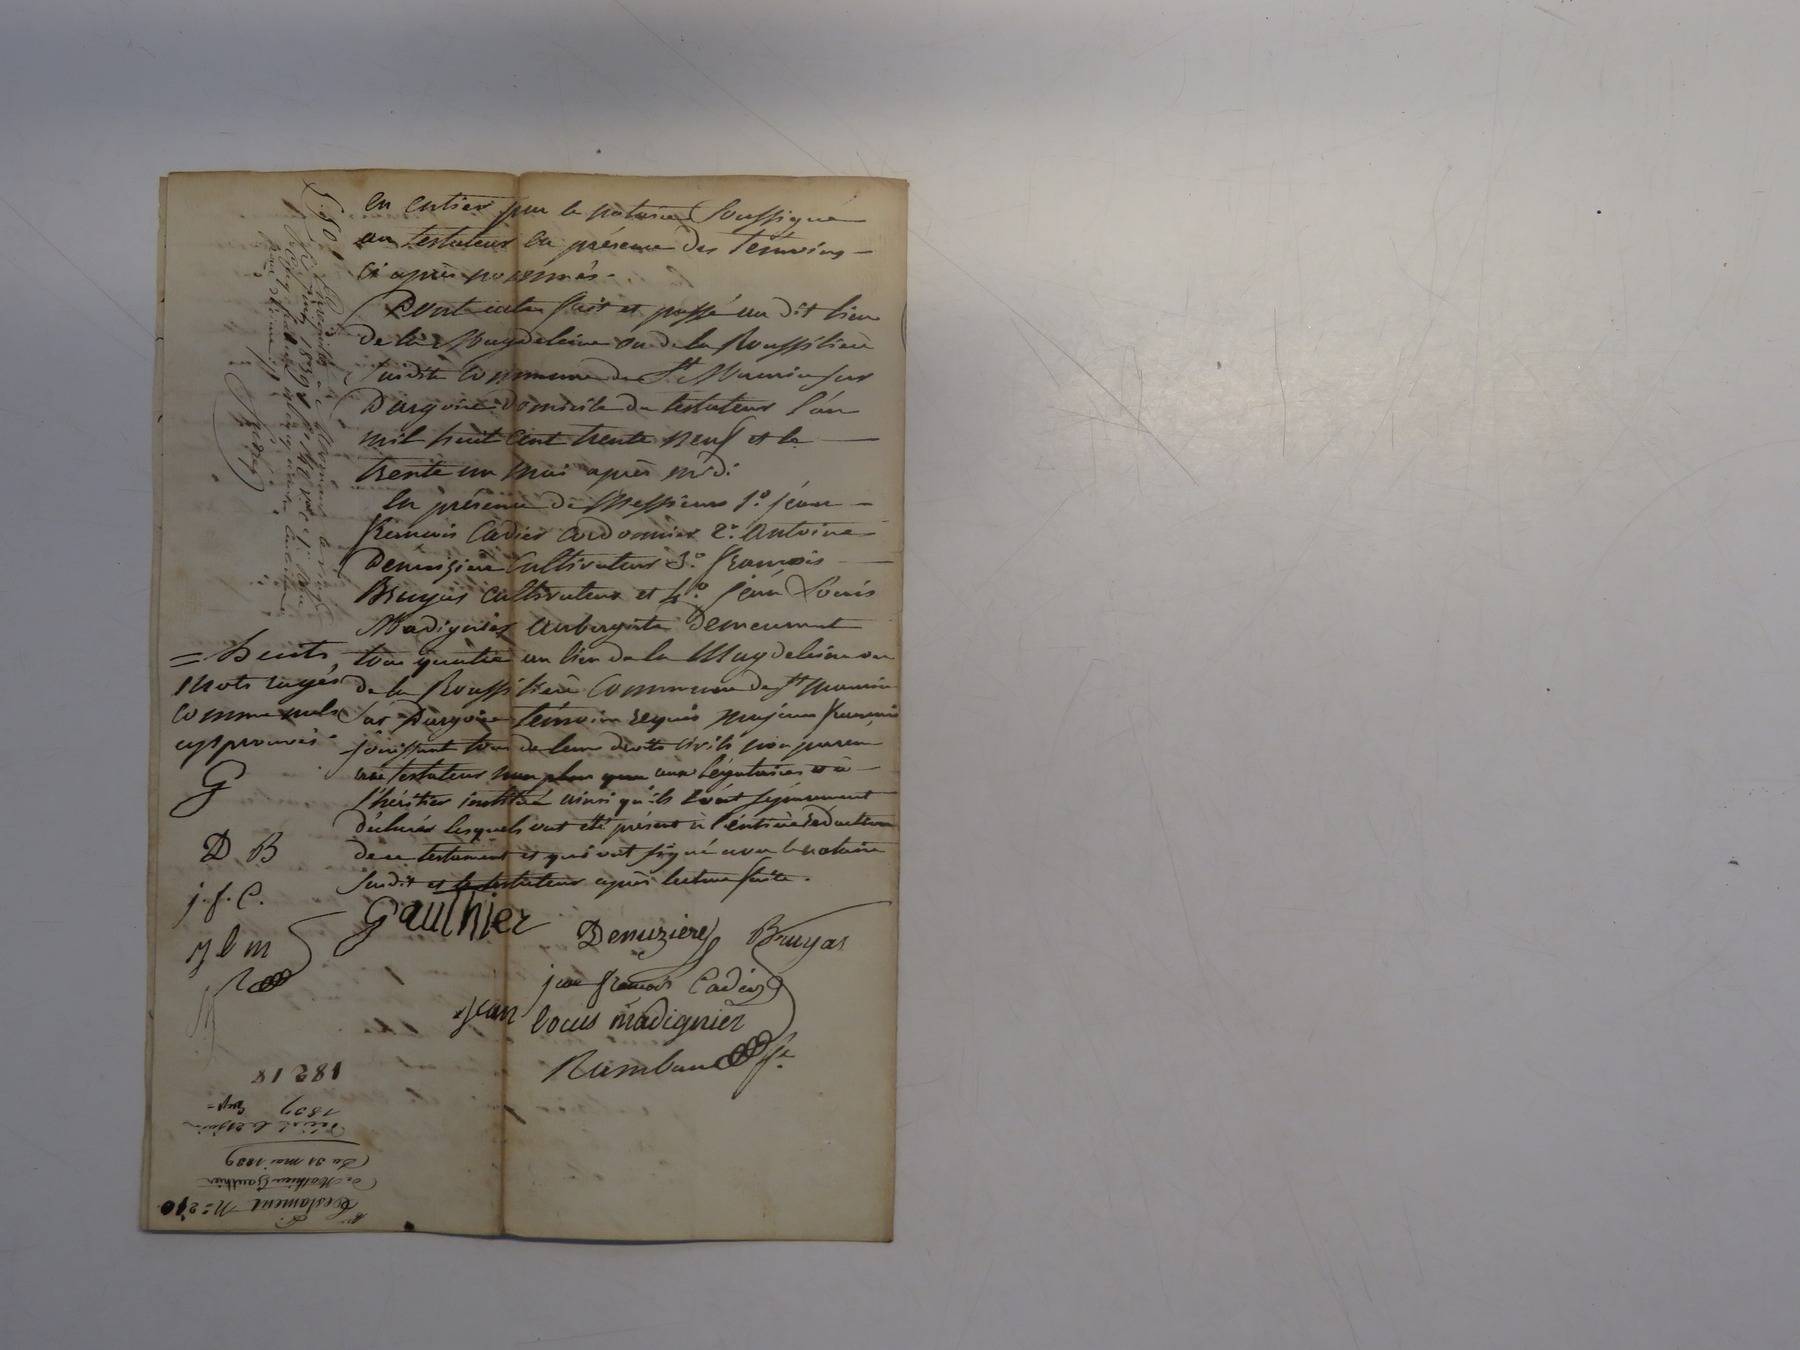 en entier par le notaire soussigné
au testateur en présence des témoins
ci après nommés.
Dont acte fait et passé au dit lieu
de la Magdeleine ou de la Roussilière
susdite commune de St Maurice sur
Dargoire domicile du testateur l'an
mil huit cent trente neuf et le
trente un mai après midi
En présence de Messieurs 1º. jean
François Cadier cordonnier 2º. Antoine
Denuzière cultivateur 3º. François
Bruyas cultivateur et 4º. jean Louis
Madignier aubergiste demeurant
tous quatre au lieu de la Magdeleine ou
de la Roussilière commune de St Maurice
sur Dargoire témoins requis majeurs français
jouissant tous de leurs droits civils non parens
au testateur non plus que aux légataires et à
l'héritier institué ainsi qu'ils l'ont séparément
déclaré lesquels ont été présent à l'entière rédaction
de ce testament et qui ont signé avec le notaire
susdit et le testateur après lecture faite.
= huit
mots rayés
comme nuls
approuvés
G
D B
j. f. C.
j l m
R
Gauthier
Denuzière Bruyas
jean françois Cadier
jean louis madignier
Rambaud
18218
1839
Décédé le
Du 31 mai 1839
De Mathieu Gauthier
Testament Nº 210